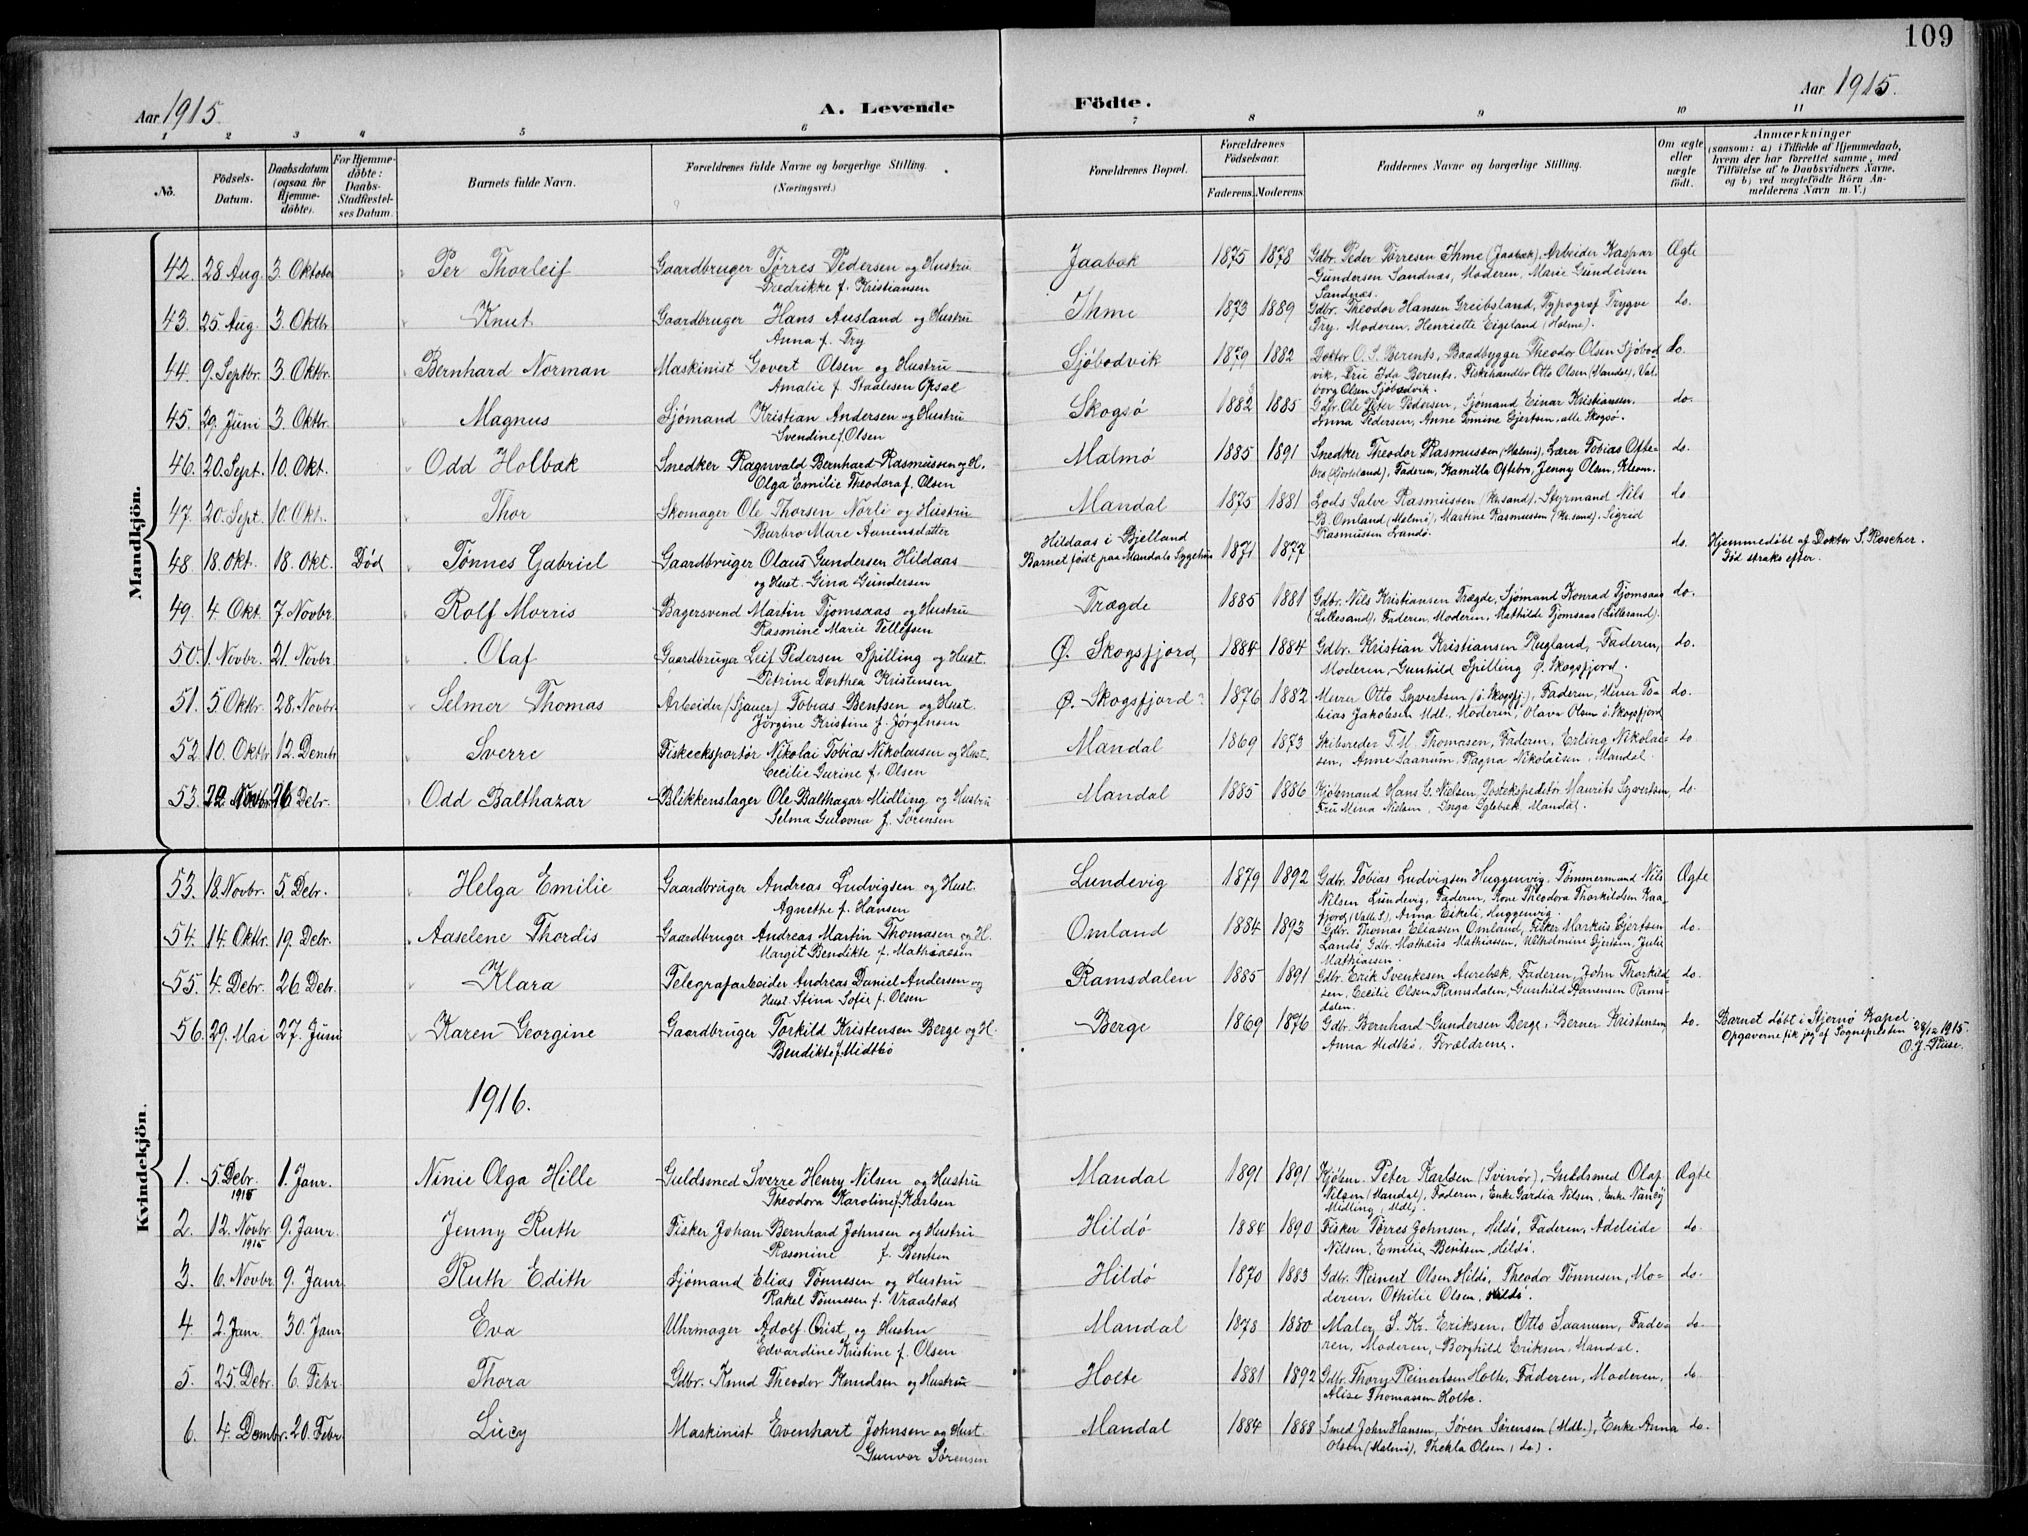 109
Aar 1915.
A. Levende Födte.
Aar 1915.
1 2 3 4 5 6 7 8 9 10 11
No.
Födsels-Datum.
Daabsdatum (ogsaa for Hjemmedöbte).
For Hjemmedöbte: Daabs-Stadfæstelses Datum.
Barnets fulde Navn.
Forældrenes fulde Navne og borgerlige Stilling. (Næringsvei.)
Forældrenes Bopæl.
Forældrenes Födselsaar.
Faderens. Moderens.
Faddernes Navne og borgerlige Stilling.
Om ægte eller uægte födt.
Anmærkninger
(saasom: a) i Tilfælde af Hjemmedaab, hvem der har forrettet samme, med Tilföielse af to Daabsvidners Navne, og b) ved uægtefödte Börn Anmelderens Navn m. V.)
Mandkjön.
42. 28 Aug. 3. Oktober Per Thorleif Gaardbruger Tørres Pedersen og Hustru Jaabæk 1875 1878 Gdbr. Peder Tørresen Ihme (Jaabæk). Arbeider Kaspar Ægte
Fredrikke f. Kristiansen Gundersen Sandnæs, Moderen, Marie Gundersen
Sandnæs.
43. 25 Aug. 3. Oktbr Knut Gaardbruger Hans Ausland og Hustru Ihme 1873 1889 Gdbr. Theodor Hansen Greibsland, Typograf Trygve do.
Anna f. Try Try. Moderen, Henriette Eigeland (Holme).
44. 9. Septbr. 3. Oktbr. Bernhard Norman Maskinist Govert Olsen og Hustru Sjøbodvik 1879 1882 Doktor O. S. Berents, Baadbygger Theodor Olsen Sjøbod do.
Amalie f. Stadesen Opsal vik, Fru Ida Berents. Fiskehandler Otto Olsen (Mandal), Val
borg Olsen Sjøbodvik.
45. 29. Juni 3. Oktbr. Magnus Sjømand Kristian Andersen og Hustru Skogsø 1882 1885 Gdbr. Ole Peter Pedersen, Sjømand Einar Kristiansen, do.
Svendine f. Olsen Anna Pedersen, Anne Tomine Gjertsen, alle Skogsø.
46. 20. Sept. 10. Okt. Odd Holbæk Snedker Ragnvald Bernhard Rasmussen og H. Malmø 1885 1891 Snedker Theodor Rasmussen (Malmø), Lærer Tobias Ofte- do.
Olga Emilie Theodora f. Olsen bro (Hjorteland), Faderen, Kamilla Oftebro, Jenny Olsen, Kleven.
47. 20. Sept. 10. Okt. Thor Skomager Ole Thorsen Nørli og Hustru Mandal 1875 1881 Lods Salve Rasmussen (Kr.sand). Styrmand Nils do
Barbro Mare Aanensdatter B. Omland (Malmø), Martine Rasmussen (Kr.sand). Sigrid
Rasmussen Landø.
48 18. Okt. 18. Okt. Død Tønnes Gabriel Gaardbruger Olaus Gundersen Hildaas Hildaas i Bjelland 1871 1877 do. Hjemmedøbt af Doktor S. Roscher.
og Hust. Gina Gundersen Barnet født paa Mandals Sygehus Død straks efter.
49. 4. Okt. 7. Novbr. Rolf Morris Bagersvend Martin Tjomsaas og Hustru Trægde 1885 1881 Gdbr. Nils Kristiansen Trægde, Sjømand Konrad Tjomsaas do.
Rasmine Marie Tellefsen (Lillesand), Faderen, Moderen, Mathilde Tjomsaas (Lillesand).
50. 1. Novbr. 21. Novbr. Olaf Gaardbruger Leif Pedersen Spilling og Hust. Ø. Skogsfjord 1884 1884 Gdbr. Kristian Kristiansen Rugland, Faderen, do.
Petrine Dorthea Kristensen Moderen, Gunhild Spilling Ø. Skogsfjord.
51. 5 Oktbr. 28. Novbr. Selmer Thomas Arbeider (Sjauer) Tobias Bentsen og Hust. Ø. Skogsfjord 1876 1882 Murer Otto Syvertsen (ø. Skogsfj.), Faderen, Murer To- do.
Jørgine Kristine f. Jørgensen bias Jakobsen Mdl. Moderen, Olava Olsen ø. Skogsfjord
52. 10. Oktbr. 12. Dembr. Sverre Fiskeeksportør Nikolai Tobias Nikolaisen og Hust. Mandal 1869 1873 Skibsreder T. M. Thomasen, Faderen, Erling Nikolai- do
Cecilie Gurine f. Olsen sen, Anne Saanum, Ragna Nikolaisen, Mandal.
53. 22 Novbr. 26 Debr. Odd Balthazar Blikkenslager Ole Balthazar Midling og Hustru Mandal 1885 1886 Kjøbmand Hans G. Nielsen, Postekspeditør Maurits Syvertsen, do.
Selma Gulovna f. Sørensen Fru Mina Nielsen, Inga Iglebæk, Mandal.
Kvindekjön.
53. 18. Novbr. 5. Debr. Helga Emilie Gaardbruger Andreas Ludvigsen og Hust. Lundevig 1879 1892 Gdbr. Tobias Ludvigsen Huggenvig. Tømmermand Nils Ægte
Agnethe f. Hansen Nilsen Lundevig, Faderen, Kone Theodora Thorkildsen Kaa-
fjord, (Valle S.), Anna Eikeli, Huggenvig.
54. 14. Oktbr. 19. Debr. Aaselene Thordis Gaardbruger Andreas Martin Thomasen og H. Omland 1884 1893 Gdbr. Thomas Eliassen Omland, Fisker Markus Gjertsen do.
Margit Bendikte f. Mathiassen Landø, Gdbr. Mathæus Mathiassen, Wilhelmine Gjertsen, Julie
Mathiassen.
55. 4. Debr. 26 Debr. Klara Telegrafarbeider Andreas Daniel Andersen og Ramsdalen 1885 1891 Gdbr. Erik Svenkesen Aurebæk. Faderen, John Thorkild- do.
Hust. Stina Sofie f. Olsen sen, Cecilie Olsen Ramsdalen, Gunhild Aanensen Rams-
dalen.
56. 29. Mai 27. Juni Karen Georgine Gaardbruger Torkild Kristensen Berge og H. Berge 1869 1876 Gdbr. Bernhard Gundersen Berge, Berner Kristensen do. Barnet døbt i Stjernø Kapel.
Bendikte f. Midtbø Anna Midtbø, Forældrene. Opgaverne fik jeg af Sognepresten 28/12 1915.
O. J. Ruse.
1916.
1. 5 Debr. 1915 1. Janr. Ninie Olga Hille Guldsmed Sverre Henry Nilsen og Hustru Mandal 1891 1891 Kjøbm. Peter Karlsen (Svinør), Guldsmed Olaf Ægte
Theodora Karoline f. Karlsen Nilsen (Mandal), Faderen, Enke Gardia Nilsen, Enke Nancy
Midling, Mdl.
2. 12. Novbr. 1915 9. Janr. Jenny Ruth Fisker Johan Bernhard Johnsen og Hustru Hildø 1884 1890 Fisker Tørres Johnsen, Hildø, Faderen, Adeleide do.
Rasmine f. Bentsen Nilsen, Emilie Bentsen, Hildø.
3. 6. Novbr. 9. Janr. Ruth Edith Sjømand Elias Tønnesen og Hustru Hildø 1870 1883 Gdbr. Reinert Olsen Hildø, Theodor Tønnesen, Mo- do.
Rakel Tønnesen f. Vraalstad deren, Othilie Olsen, Hildø.
4. 2. Janr. 30. Janr Eva Uhrmager Adolf Qvist og Hustru Mandal 1878 1880 Maler S. Kr. Eriksen, Otto Saanum, Fade- do.
Edvardine Kristine f. Olsen ren, Moderen, Borghild Eriksen, Mandal.
5. 25 Debr. 6. Febr. Thora Gdbr. Knud Theodor Knudsen og Hustru Holte 1881 1892 Gdbr. Thory Reinertsen Holte, Faderen, Moderen, do.
Alise Thomassen Holte.
6. 4. Dembr. 20. Febr. Lucy Maskinist Evenhart Johnsen og Hust. Mandal 1884 1888 Smed John Hansen, Søren Sørensen (Mdl.), Enke Anna do.
Gunvor Sørensen Olsen (Malmø), Thekla Olsen, do).